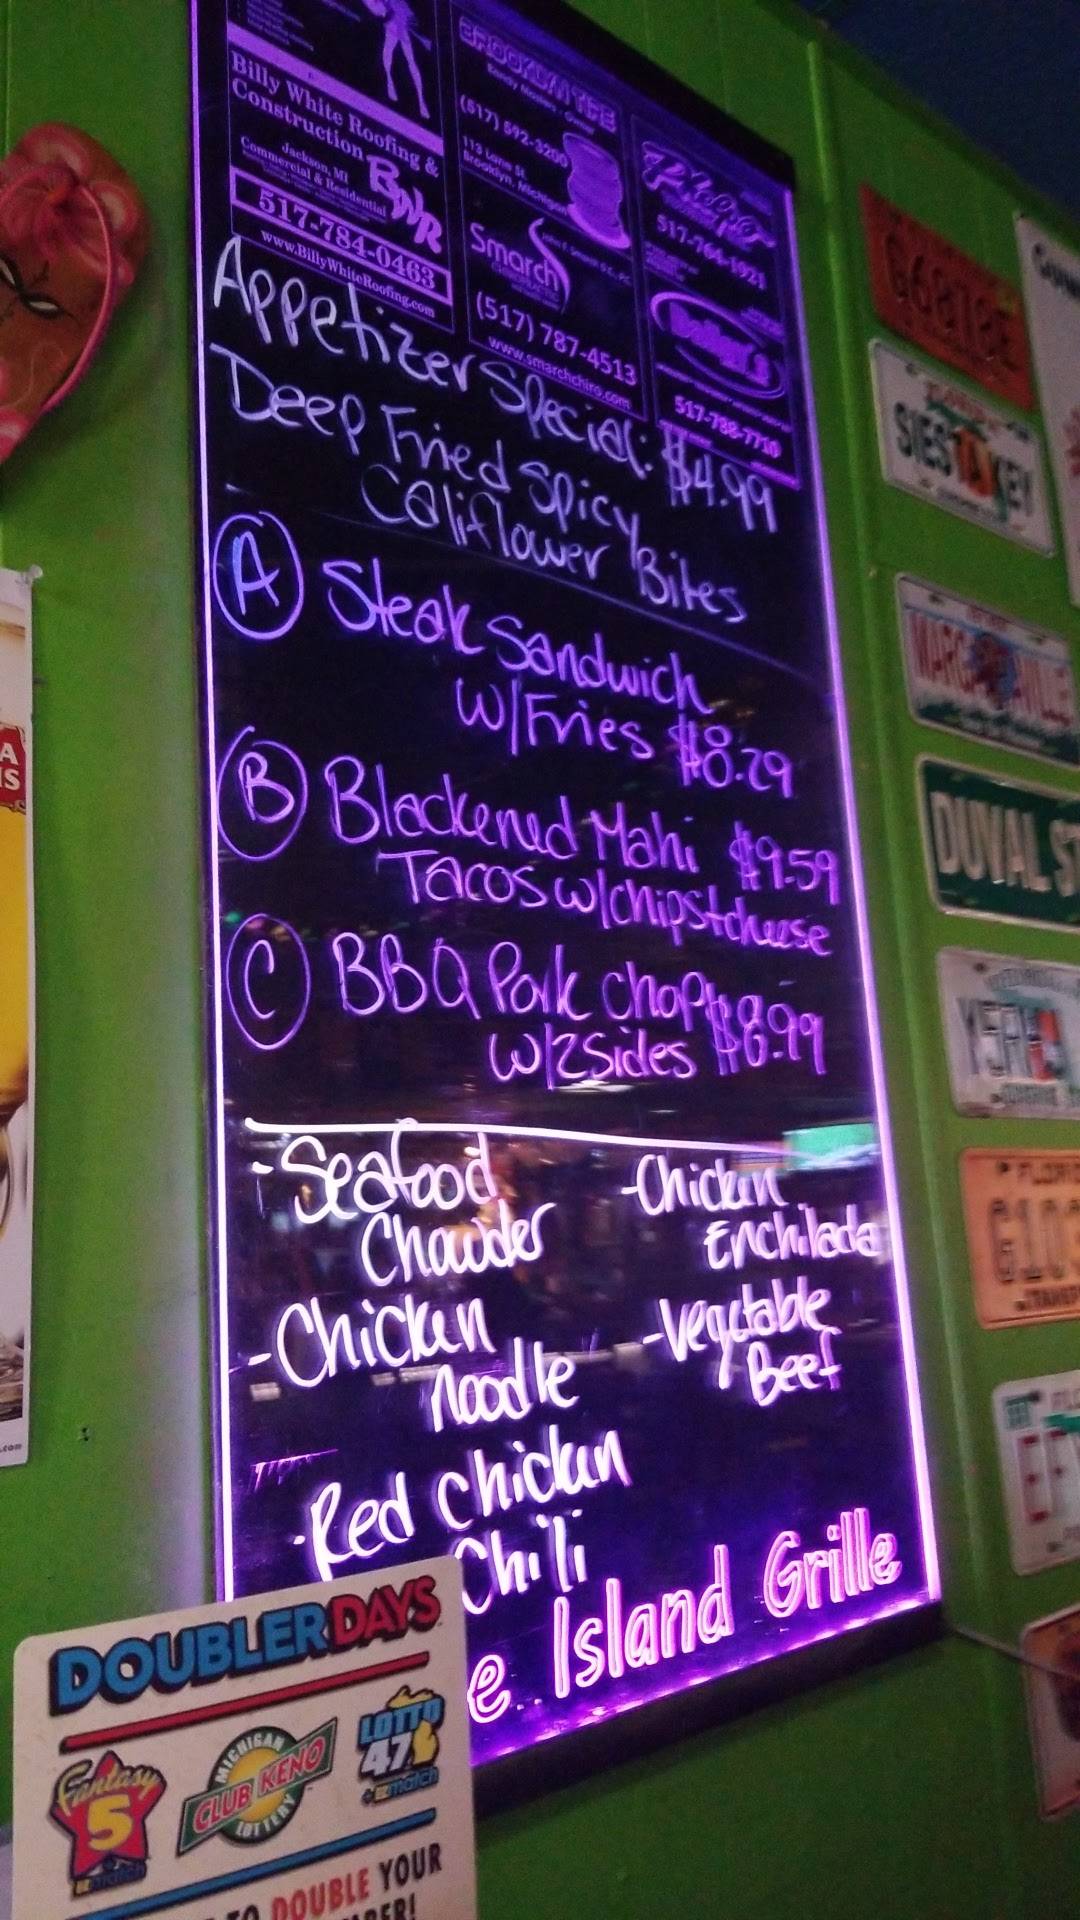 Billy White Roofing &
Construction
Jackson, MI
Commercial & Residential
BWR
517-784-0463
www.BillyWhiteRoofing.com
(517) 592-3200
Brooklyn, Michigan
Smarch
(517) 787-4513
www.smarchchiro.com
517-764-1921
517-788-7710
Appetizer Special: $4.99
Deep Fried Spicy
Califlower Bites
A Steak Sandwich
w/Fries $8.29
B Blackened Mahi $9.59
Tacos w/chips+cheese
C BBQ Pork Chop
w/2 Sides $8.99
-Seafood
Chowder
-Chicken
Noodle
-Red Chicken
Chili
-Chicken
Enchilada
-Vegetable
Beef
e Island Grille
DOUBLER DAYS
Fantasy
5
MICHIGAN
CLUB KENO
LOTTERY
LOTTO
47
TO DOUBLE YOUR
SIESTA KEY
DUVAL ST